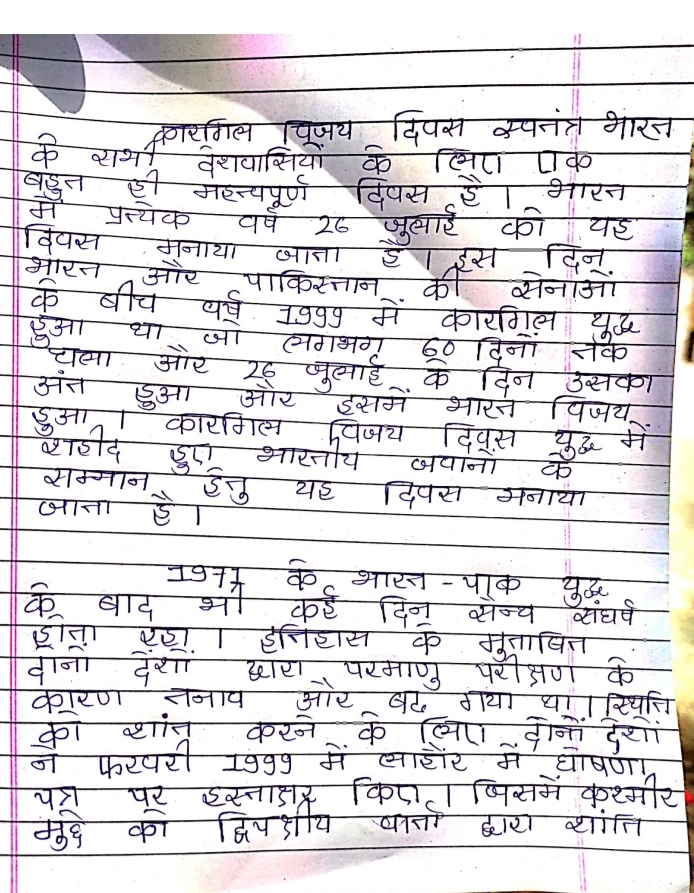 कारगिल विजय दिवस स्वतंत्र भारत
के सभी देशवासियों के लिए एक
बहुत ही महत्वपूर्ण दिवस है । भारत
में प्रत्येक वर्ष 26 जुलाई को यह
दिवस मनाया जाता है । इस दिन
भारत और पाकिस्तान की सेनाओं
के बीच वर्ष 1999 में कारगिल युद्ध
हुआ था जो लगभग 60 दिनों तक
चला और 26 जुलाई के दिन उसका
अंत हुआ और इसमें भारत विजय
हुआ । कारगिल विजय दिवस युद्ध में
शहीद हुए भारतीय जवानों के
सम्मान हेतु यह दिवस मनाया
जाता है ।
1971 के भारत - पाक युद्ध
के बाद भी कई दिन सैन्य संघर्ष
होता रहा । इतिहास के मुताबित
दोनों देशों द्वारा परमाणु परीक्षण के
कारण तनाव और बढ गया था । स्थिति
को शांत करने के लिए दोनों देशों
ने फरवरी 1999 में लाहौर में घोषणा
पत्र पर हस्ताक्षर किए । जिसमें कश्मीर
मुद्दे को द्विपक्षीय वार्ता द्वारा शांति